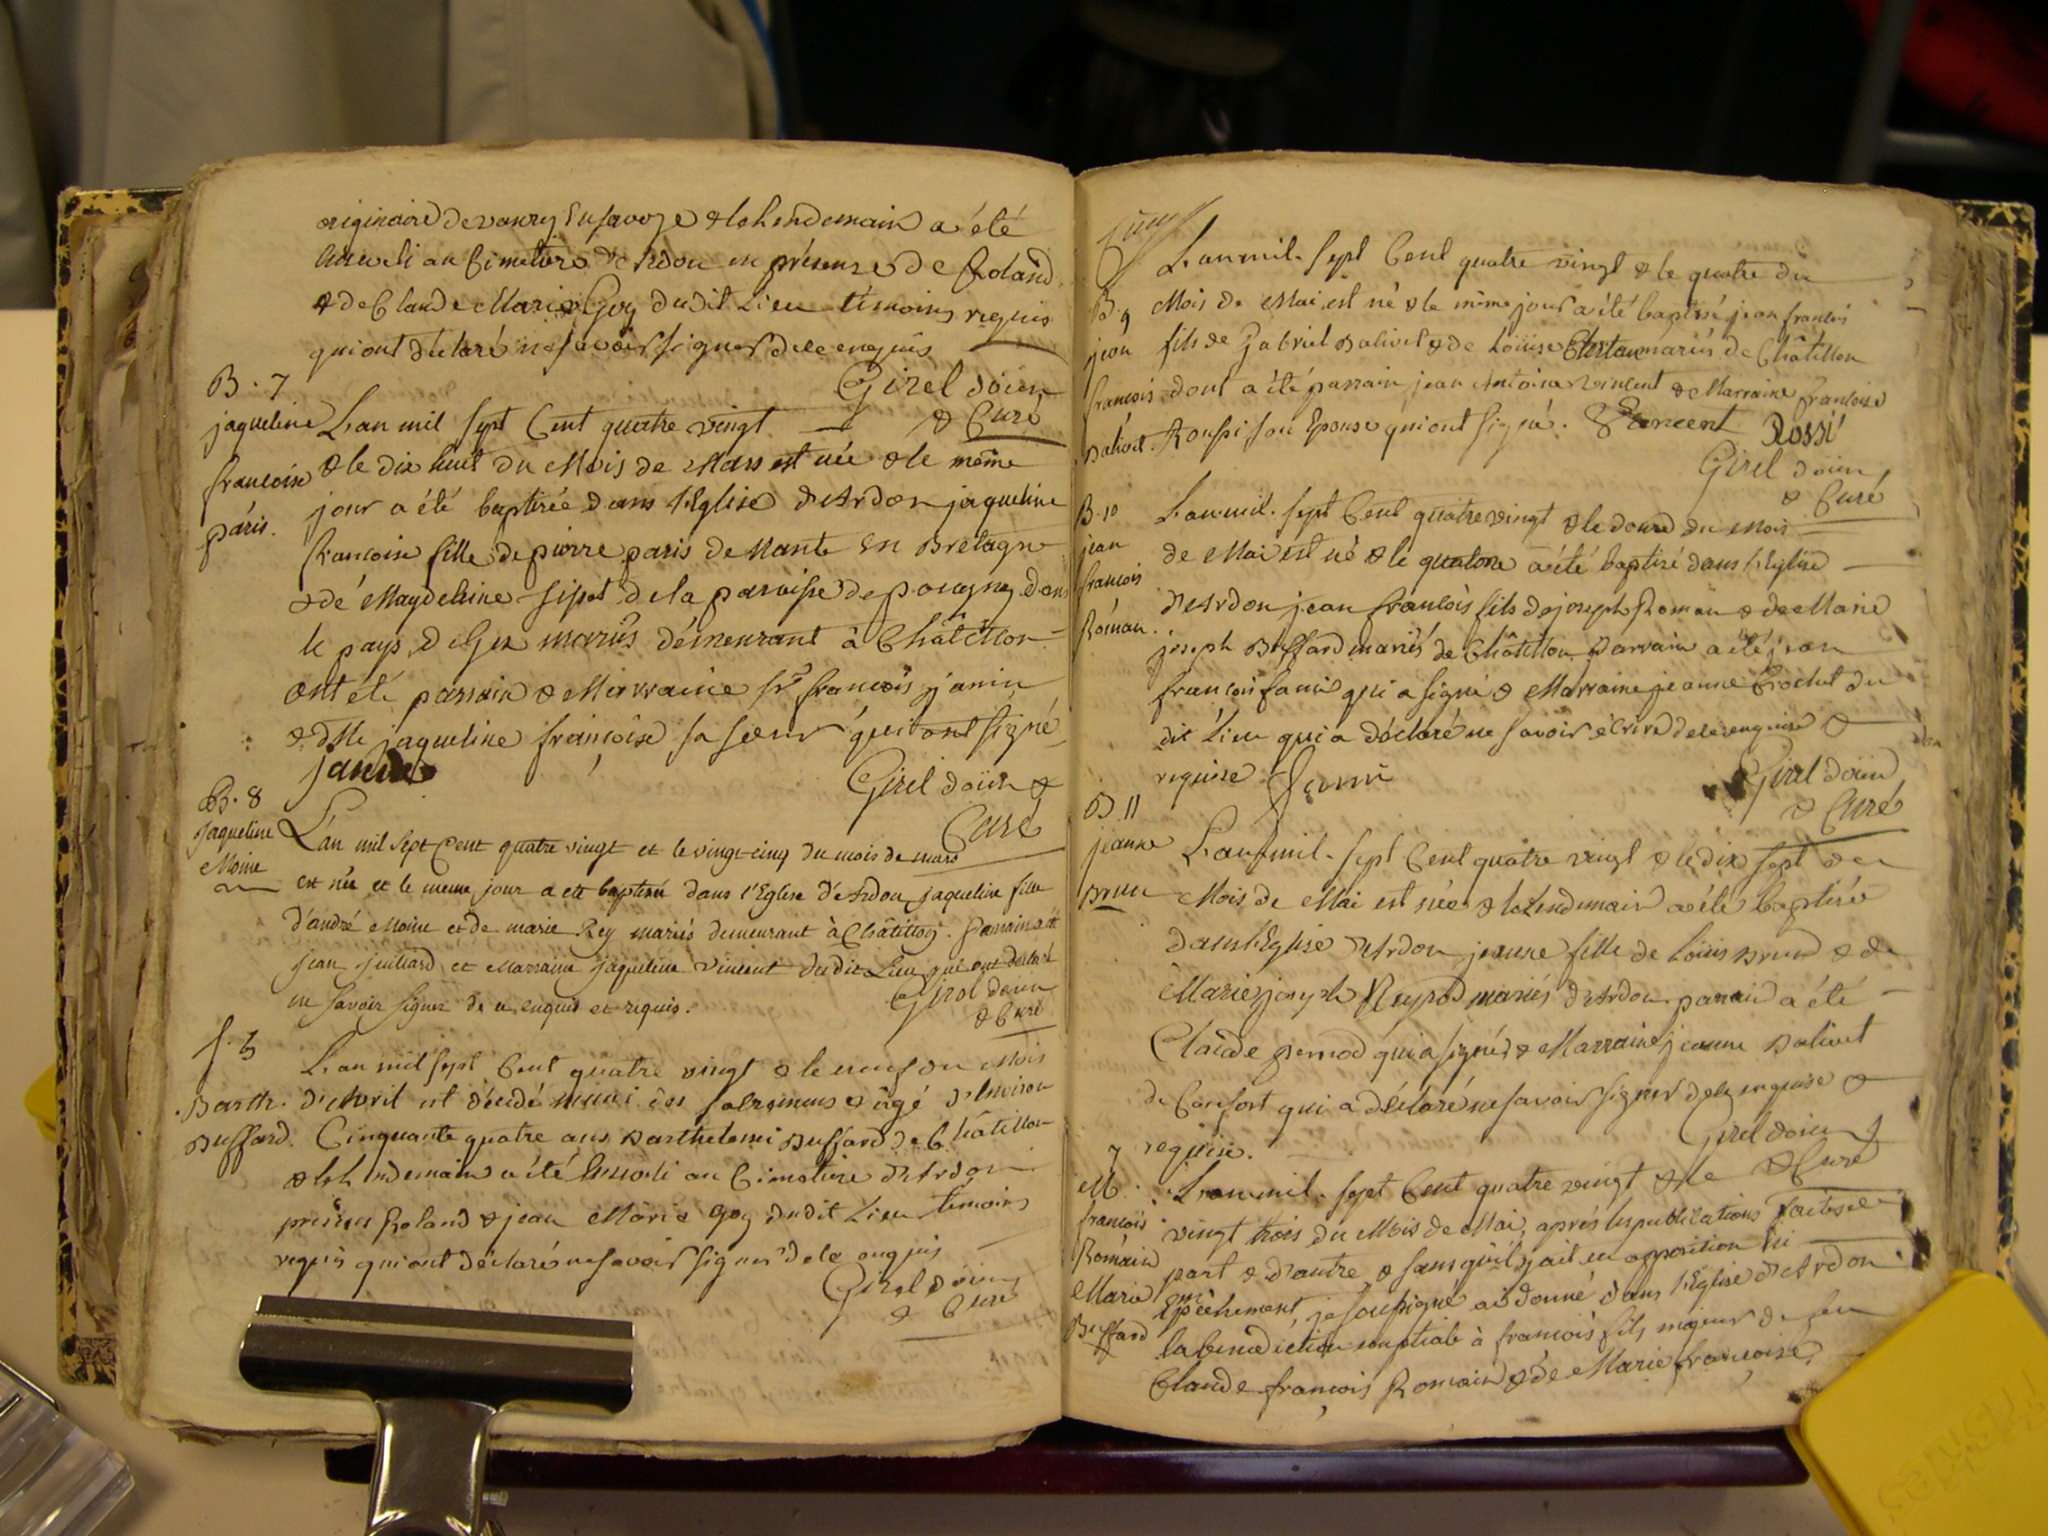 originaire de vanzy En savoye & le Lendemain a été
Enseveli au Cimetiere d'Ardon en présence de Roland
& de Claude Marie Goy dudit Lieu témoins requis
qui ont déclaré ne savoir signer de ce enquis
Girel doïen
& Curé
B. 7
jaqueline
francoise
paris.
L'an mil sept Cent quatre vingt
& le dix huit du Mois de Mars est née & le même
jour a été baptisée dans l'Eglise d'Ardon jaqueline
francoise fille de pierre paris de Nante En Bretagne
& de Magdelaine sipot de la paroisse de pouigny dans
le pays de Gex mariés démeurant à Châtillon
ont été parrain & Marraine sr. francois janin
& dlle jaqueline francoise sa soeur qui ont signé
Girel doïen &
Curé
B. 8
jaqueline
Moine
L'an mil sept Cent quatre vingt et le vingt cinq du mois de mars
est née et le meme jour a eté baptisée dans l'Eglise d'Ardon jaqueline fille
d'andré Moine et de marie Rey mariés demeurant à Châtillon. Parrain a été
jean juillard et Marraine jaqueline Vincent dudit Lieu qui ont declaré
ne savoir signer de ce enquis et requis.
Girel doïen
& Curé
f. 3
Barth.
Buffard.
L'an mil sept Cent quatre vingt & le neuf du Mois
d'Avril est décédé muni des sacremens & âgé d'Environ
Cinquante quatre ans Barthelemi Buffard de Châtillon
& le Lendemain a été Enseveli au Cimetiere d'Ardon
présens Roland & jean Marie Goy dudit Lieu témoins
requis qui ont déclaré ne savoir signer de ce enquis
Girel doïen
& Curé
B. 9
jean
francois
Balivet.
L'an mil sept Cent quatre vingt & le quatre du
Mois de Mai est né & le même jour a été baptisé jean francois
fils de Gabriel Balivet & de Loüise mariés de Châtillon
dont a été parrain jean Antoine Vincent & Marraine francoise
Roussi son Epouse qui ont signé. Vincent Rossi
Girel doïen
& Curé
B. 10
jean
francois
Román.
L'an mil sept Cent quatre vingt & le douze du Mois
de Mai est né & le quatorze a été baptisé dans l'Eglise
d'Ardon jean francois fils de joseph Roman & de Marie
joseph Buffard mariés de Châtillon Parrain a été jean
francois famis qui a signé & Marraine jeanne Crochet du
dit Lieu qui a déclaré ne savoir écrire de ce enquise &
requise.
Girel doïen
& Curé
B. 11
jeanne
Brun
L'an mil sept Cent quatre vingt & le dix sept du
Mois de Mai est née & le Lendemain a été baptisée
dans l'Eglise d'Ardon jeanne fille de Loüis Brun & de
Marie joseph Reypod mariés d'Ardon parrain a été
Claude pernod qui a signé & Marraine jeanne Balivet
de Confort qui a déclaré ne savoir signer de ce enquise &
requise.
Girel doïen
& Curé
M.
francois
Románd
Marie
Buffard
L'an mil sept Cent quatre vingt & le
vingt trois du Mois de Mai, aprés les publications faites de
part & d'autre & sans qu'il y ait eu opposition ni
Empêchement, je soussigné ai donné dans l'Eglise d'Ardon
la benediction nuptiale à francois fils majeur de feu
Claude francois Románd & de Marie francoise